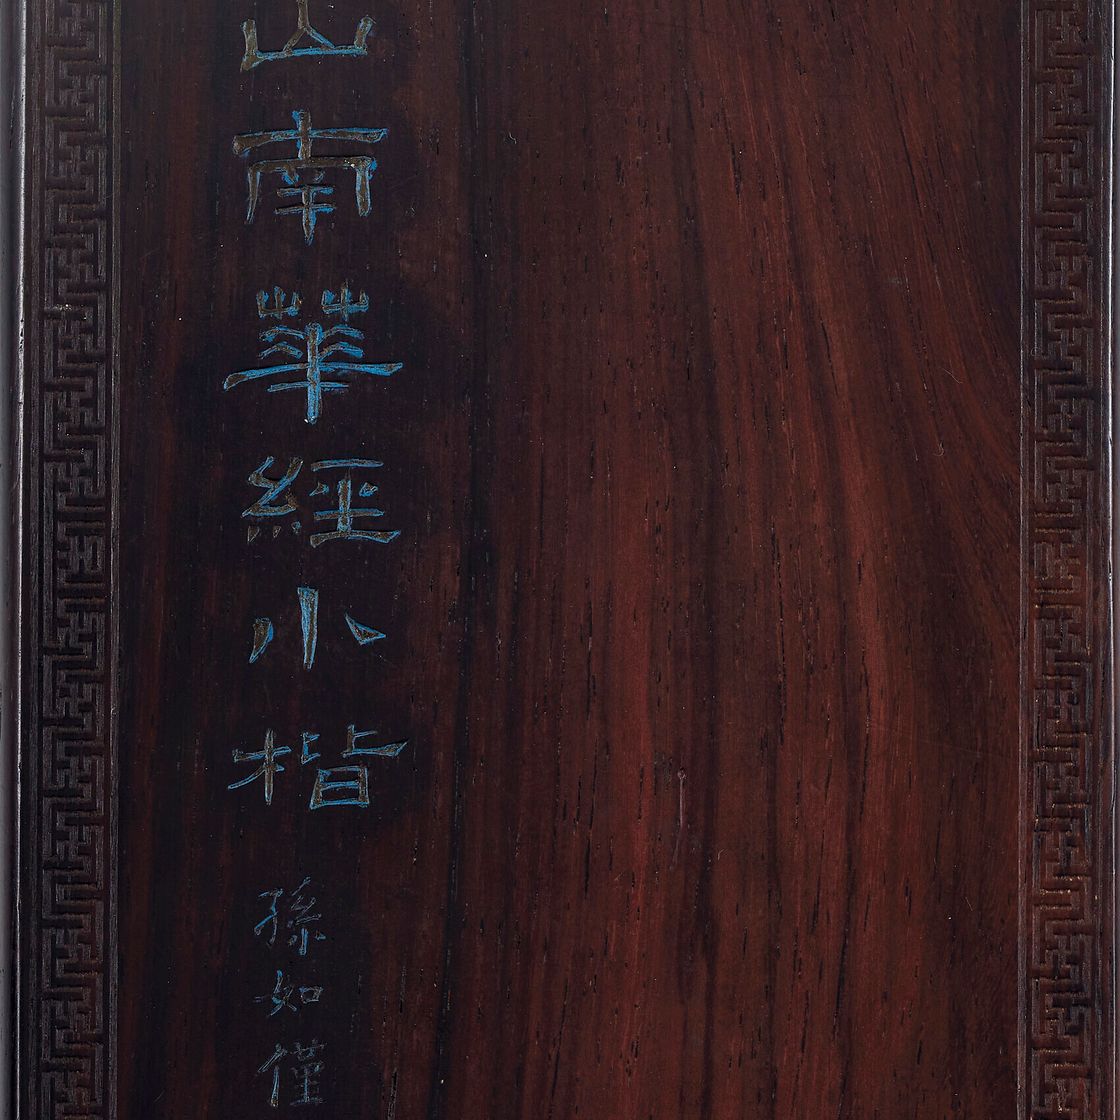 山南華經小楷 孫如僅